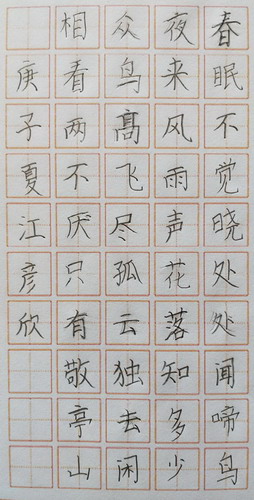 春眠不觉晓处处闻啼鸟
夜来风雨声花落知多少
众鸟高飞尽孤云独去闲
相看两不厌只有敬亭山
庚子夏江彦欣